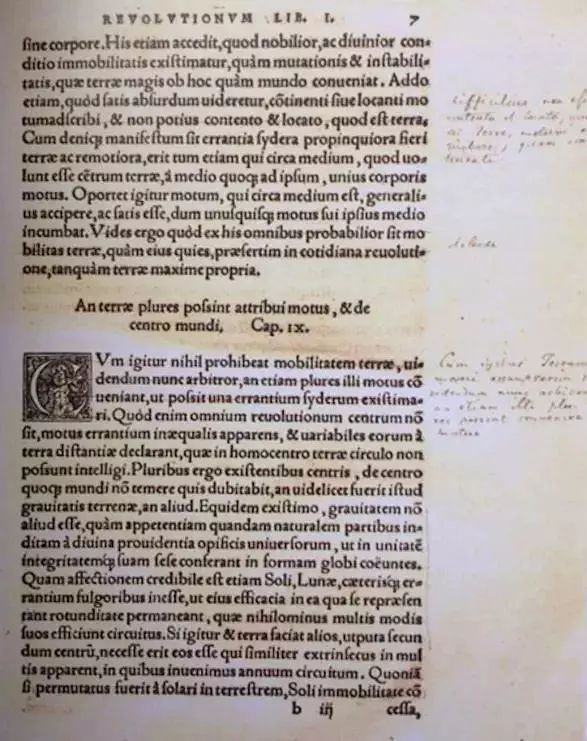 REVOLVTIONVM LIB. I. 7
ſine corpore. His etiam accedit, quod nobilior, ac diuinior con-
ditio immobilitatis exiſtimatur, quàm mutationis & inſtabili-
tatis, quæ terræ magis ob hoc quàm mundo conueniat. Addo
etiam, quòd ſatis abſurdum uideretur, cõtinenti ſiue locanti mo
tum adſcribi, & non potius contento & locato, quod eſt terra.
Cum denicꝗ manifeſtum ſit errantia ſydera propinquiora fieri
terræ ac remotiora, erit tum etiam qui circa medium, quod uo-
lunt eſſe cẽtrum terræ, à medio quocꝗ ad ipſum, unius corporis
motus. Oportet igitur motum, qui circa medium eſt, generali-
us accipere, ac ſatis eſſe, dum unuſquiſcꝗ motus ſui ipſius medio
incumbat. Vides ergo quòd ex his omnibus probabilior ſit mo
bilitas terræ, quàm eius quies, præſertim in cotidiana reuoluti-
one, tanquàm terræ maxime propria.
An terræ plures poſsint attribui motus, & de
centro mundi. Cap. IX.
CVm igitur nihil prohibeat mobilitatem terræ, ui-
dendum nunc arbitror, an etiam plures illi motus cõ
ueniant, ut poſsit una errantium ſyderum exiſtima-
ri. Quòd enim omnium reuolutionum centrum nõ
ſit, motus errantium inæqualis apparens, & uariabiles eorum à
terra diſtantiæ declarant, quæ in homocentro terræ circulo non
poſſunt intelligi. Pluribus ergo exiſtentibus centris, de centro
quocꝗ mundi nõ temere quis dubitabit, an uidelicet fuerit iſtud
grauitatis terrenæ, an aliud. Equidem exiſtimo, grauitatem nõ
aliud eſſe, quàm appetentiam quandam naturalem partibus in-
ditam à diuina prouidentia opificis uniuerſorum, ut in unitatẽ
integritatemcꝗ ſuam ſeſe conferant in formam globi coëuntes.
Quam affectionem credibile eſt etiam Soli, Lunæ, cæteriſcꝗ er-
rantium fulgoribus ineſſe, ut eius efficacia in ea qua ſe repræſen
tant rotunditate permaneant, quæ nihilominus multis modis
ſuos efficiunt circuitus. Si igitur & terra faciat alios, utputa ſecun
dum centrũ, neceſſe erit eos eſſe qui ſimiliter extrinſecus in mul
tis apparent, in quibus inuenimus annuum circuitum. Quoniã
ſi permutatus fuerit à ſolari in terreſtrem, Soli immobilitate cõ
b iij ceſſa,
Cum igitur Terram